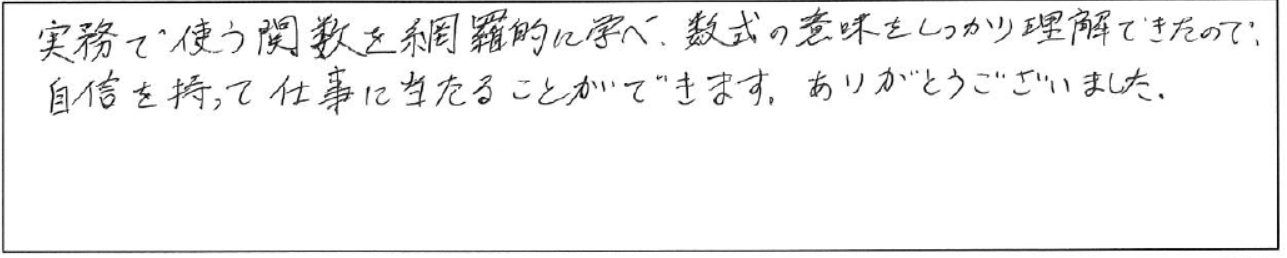 実務で使う関数を網羅的に学べ、数式の意味をしっかり理解できたので、
自信を持って仕事に当たることができます。ありがとうございました。